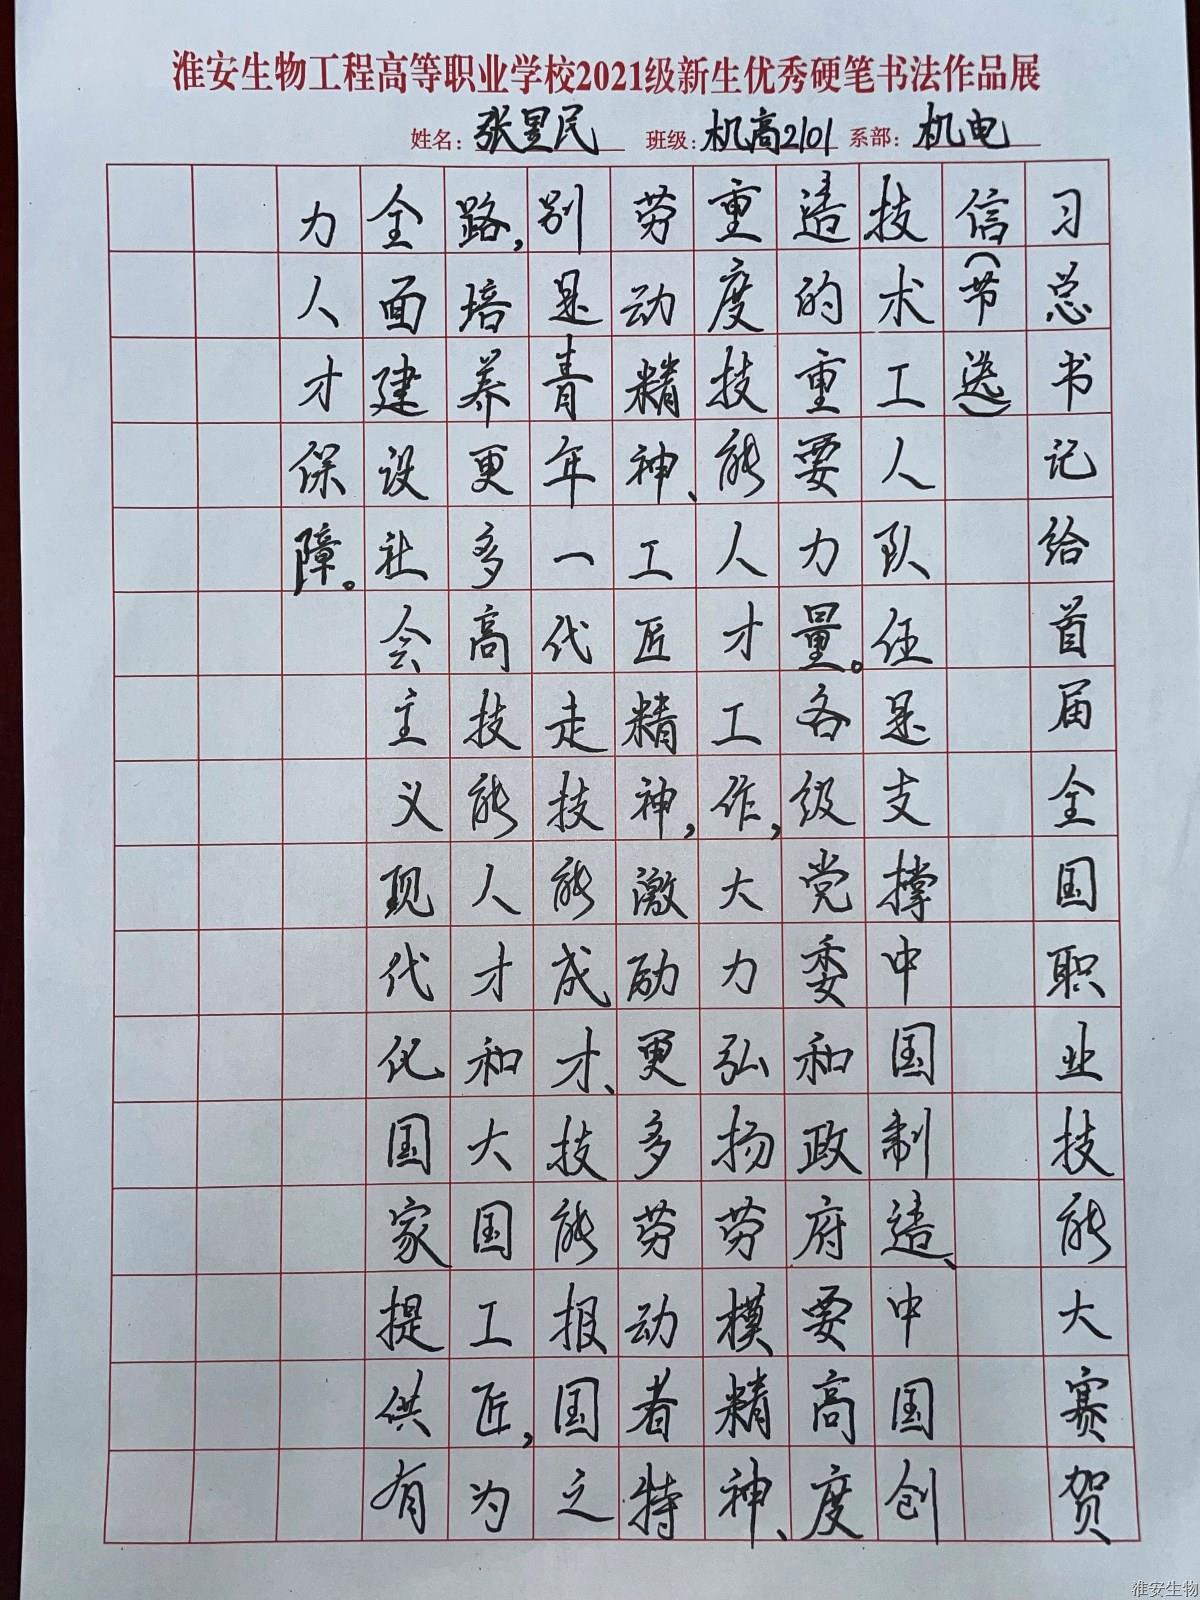 淮安生物工程高等职业学校2021级新生优秀硬笔书法作品展
姓名：张昱民 班级：机高2101 系部：机电
习总书记给首届全国职业技能大赛贺
信（节选）
技术工人队伍是支撑中国制造、中国创
造的重要力量。各级党委和政府要高度
重度技能人才工作，大力弘扬劳模精神、
劳动精神、工匠精神，激励更多劳动者特
别是青年一代走技能成才、技能报国之
路，培养更多高技能人才和大国工匠，为
全面建设社会主义现代化国家提供有
力人才保障。
淮安生物